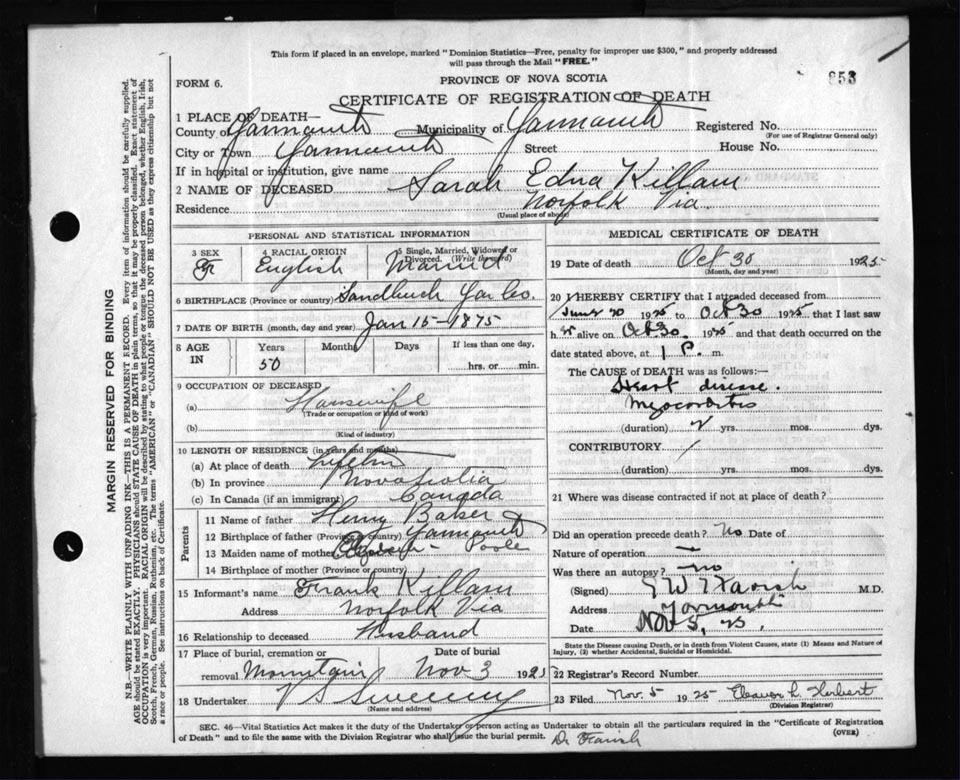 This form if placed in an envelope, marked "Dominion Statistics—Free, penalty for improper use $300," and properly addressed
will pass through the Mail "FREE."
FORM 6.
PROVINCE OF NOVA SCOTIA
853
CERTIFICATE OF REGISTRATION OF DEATH
1 PLACE OF DEATH—
County of Yarmouth Municipality of Yarmouth Registered No.
(For use of Registrar General only)
City or Town Yarmouth Street House No.
If in hospital or institution, give name
2 NAME OF DECEASED Sarah Edna Killam
Residence Norfolk Via.
(Usual place of abode)
PERSONAL AND STATISTICAL INFORMATION
3 SEX 4 RACIAL ORIGIN English 5 Single, Married, Widowed or Divorced. (Write the word) Married
6 BIRTHPLACE (Province or country) Sandbeach Yar Co.
7 DATE OF BIRTH (month, day and year) Jan 15-1875
8 AGE IN Years 50 Months Days If less than one day, hrs. or min.
9 OCCUPATION OF DECEASED
(a) Housewife
(Trade or occupation or kind of work)
(b)
(Kind of industry)
10 LENGTH OF RESIDENCE (in years and months)
(a) At place of death
(b) In province Nova Scotia
(c) In Canada (if an immigrant) Canada
Parents
11 Name of father Henry Baker
12 Birthplace of father (Province or country) Yarmouth
13 Maiden name of mother Poole
14 Birthplace of mother (Province or country)
15 Informant's name Frank Killam
Address Norfolk Via
16 Relationship to deceased Husband
17 Place of burial, cremation or removal Mountain Date of burial Nov 3 192
18 Undertaker V S Sweeny
(Name and address)
MEDICAL CERTIFICATE OF DEATH
19 Date of death Oct 30 1925
(Month, day and year)
20 I HEREBY CERTIFY that I attended deceased from
June 20 1925 to Oct 30 1925 that I last saw
h er alive on Oct 30 1925 and that death occurred on the
date stated above, at 1 P. m.
The CAUSE of DEATH was as follows:—
Heart disease.
Myocarditis
(duration) 2 yrs. mos. dys.
CONTRIBUTORY
(duration) yrs. mos. dys.
21 Where was disease contracted if not at place of death?
Did an operation precede death? No Date of
Nature of operation —
Was there an autopsy? no
(Signed) G W T Farish M.D.
Address Yarmouth
Date Nov 5, 25.
State the Disease causing Death, or in death from Violent Causes, state (1) Means and Nature of
Injury, (2) whether Accidental, Suicidal or Homicidal.
22 Registrar's Record Number
23 Filed Nov. 5 1925 Eleanor L. Herbert
(Division Registrar)
SEC. 46—Vital Statistics Act makes it the duty of the Undertaker or person acting as Undertaker to obtain all the particulars required in the "Certificate of Registration
of Death" and to file the same with the Division Registrar who shall issue the burial permit.
(OVER)
Dr Farish
MARGIN RESERVED FOR BINDING
N.B.—WRITE PLAINLY WITH UNFADING INK—THIS IS A PERMANENT RECORD. Every item of information should be carefully supplied.
AGE should be stated EXACTLY. PHYSICIANS should STATE CAUSE OF DEATH in plain terms, so that it may be properly classified. Exact statement of
OCCUPATION is very important. RACIAL ORIGIN will be described by stating to what people or tongue the deceased person belonged, whether English, Irish,
Scotch, French, German, Russian, Ruthenian, etc. The terms "AMERICAN" or "CANADIAN" SHOULD NOT BE USED as they express citizenship but not
a race or people. See instructions on back of Certificate.